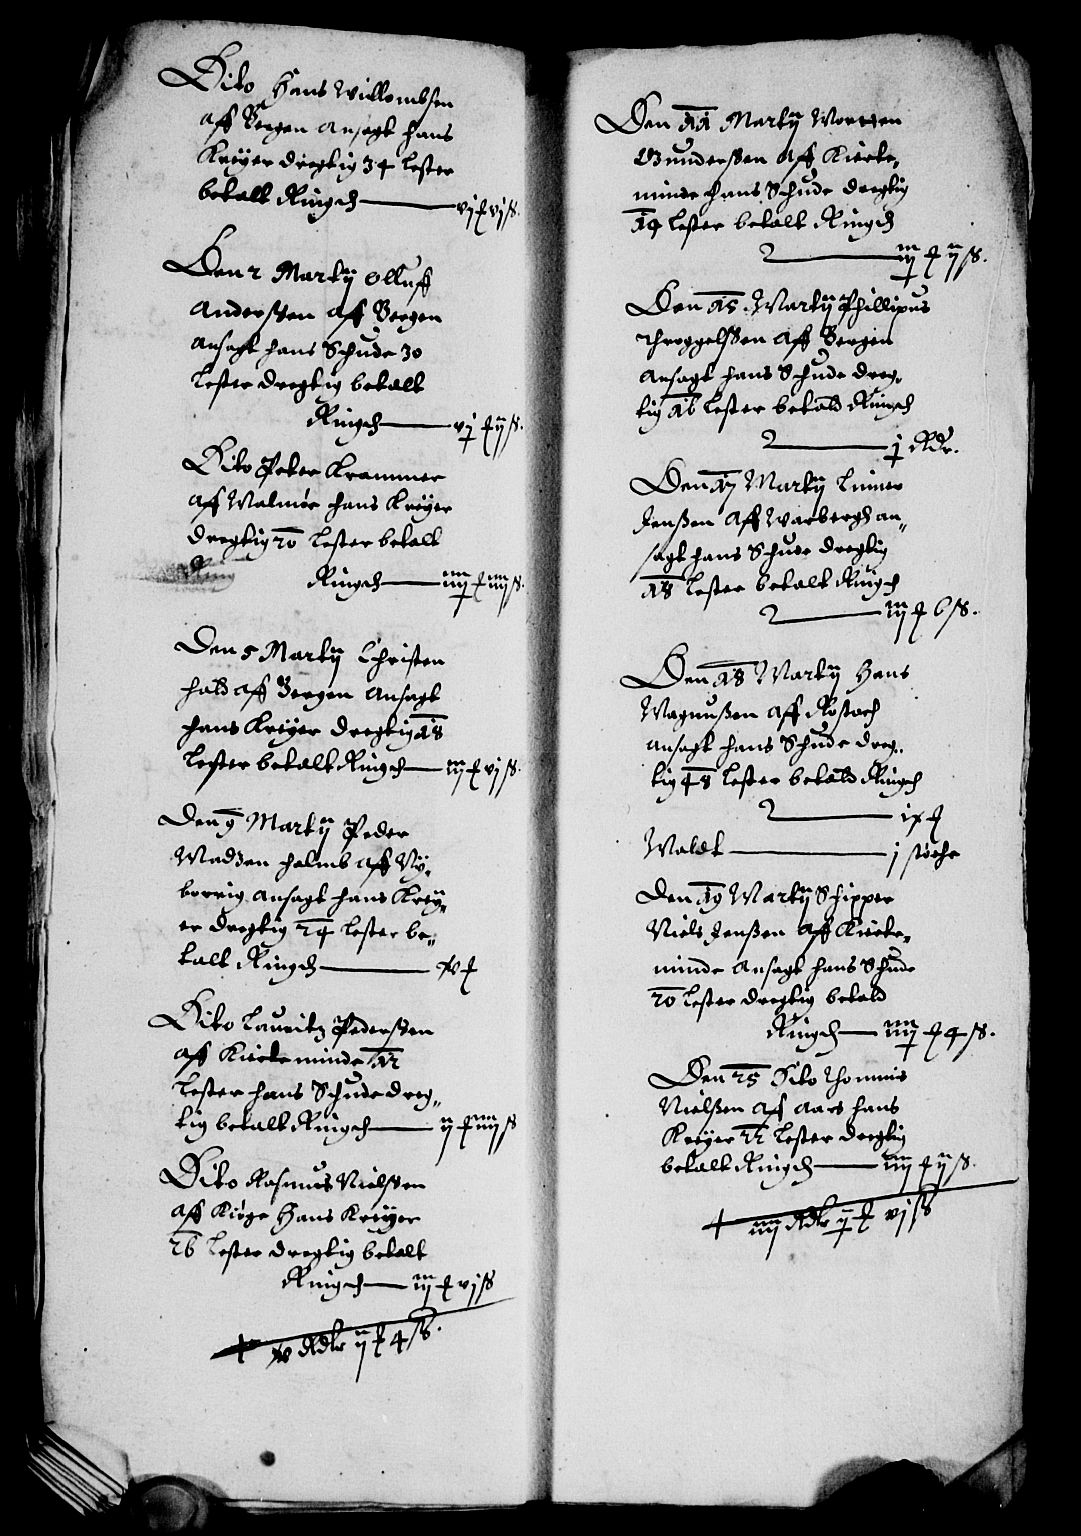 Dito Hans Willombsen
aff Bergen ansagt hans
Kreyer dregtig 34 lester
betalt Ringsch — vj ₰ vj ß.
Den 2 Martij Olluff
Anderssen aff Bergen
ansagt hans Schude 30
lester dregtig betalt
Ringsch — vj ₰ ij ß.
Dito Peter Krammer
aff Malmøe hans Kreyer
dregtig 20 lester betalt
Ring Ringsch — iiij ₰ iiij ß.
Den 5 Martij Christen
hald aff Bergen Ansagt
hans Kreyer dregtig 18
lester betalt Ringsch — iij ₰ vj ß.
Den 9 Martij Peder
Madzen holmb aff Ny-
borrig ansagt hans Krey-
er dregtig 24 lester be-
talt Ringsch — ₰
Dito Lauritz Pederssen
aff Kierteminde 12
lester hans Schude dreg-
tig betalt Ringsch — ij ₰ iiij ß
Dito Rasmus Nielssen
aff Kiøge Hans Kreyer
26 lester dregtig betalt
Ringsch — iij ₰ vj ß
Rdlr ij ₰ 4 ß.
Den 11 Martij Morten
Gunderssen aff Kierte-
minde hans Schude dregtig
14 lester betalt Ringsch
— iij ₰ ij ß.
Den 15 Martij Phillipus
Throggelssen aff Bergen
ansagt hans Schude dreg-
tig 16 lester betald Ringsch
— j Rdr.
Den 17 Martij
Jenssen aff Warbergh an-
sagt hans Schude dregtig
18 lester betalt Ringsch
— iij ₰ 6 ß.
Den 18 Martij Hans
Magnussen aff Rostoch
ansagt hans Schude dreg-
tig 48 lester betald Ringsch
— ix ₰
Maldt — j støche
Den 19 Martij Schipper
Niels Jenssen aff Kierte-
minde ansagt hans Schude
20 lester dregtig betald
Ringsch — iiij ₰ 4 ß.
Den 25 Dito Thommis
Nielssen aff Aars hans
Kreyer 22 lester dregtig
betalt Ringsch — iiij ₰ ij ß.
iiij Rdlr ij ₰ vj ß